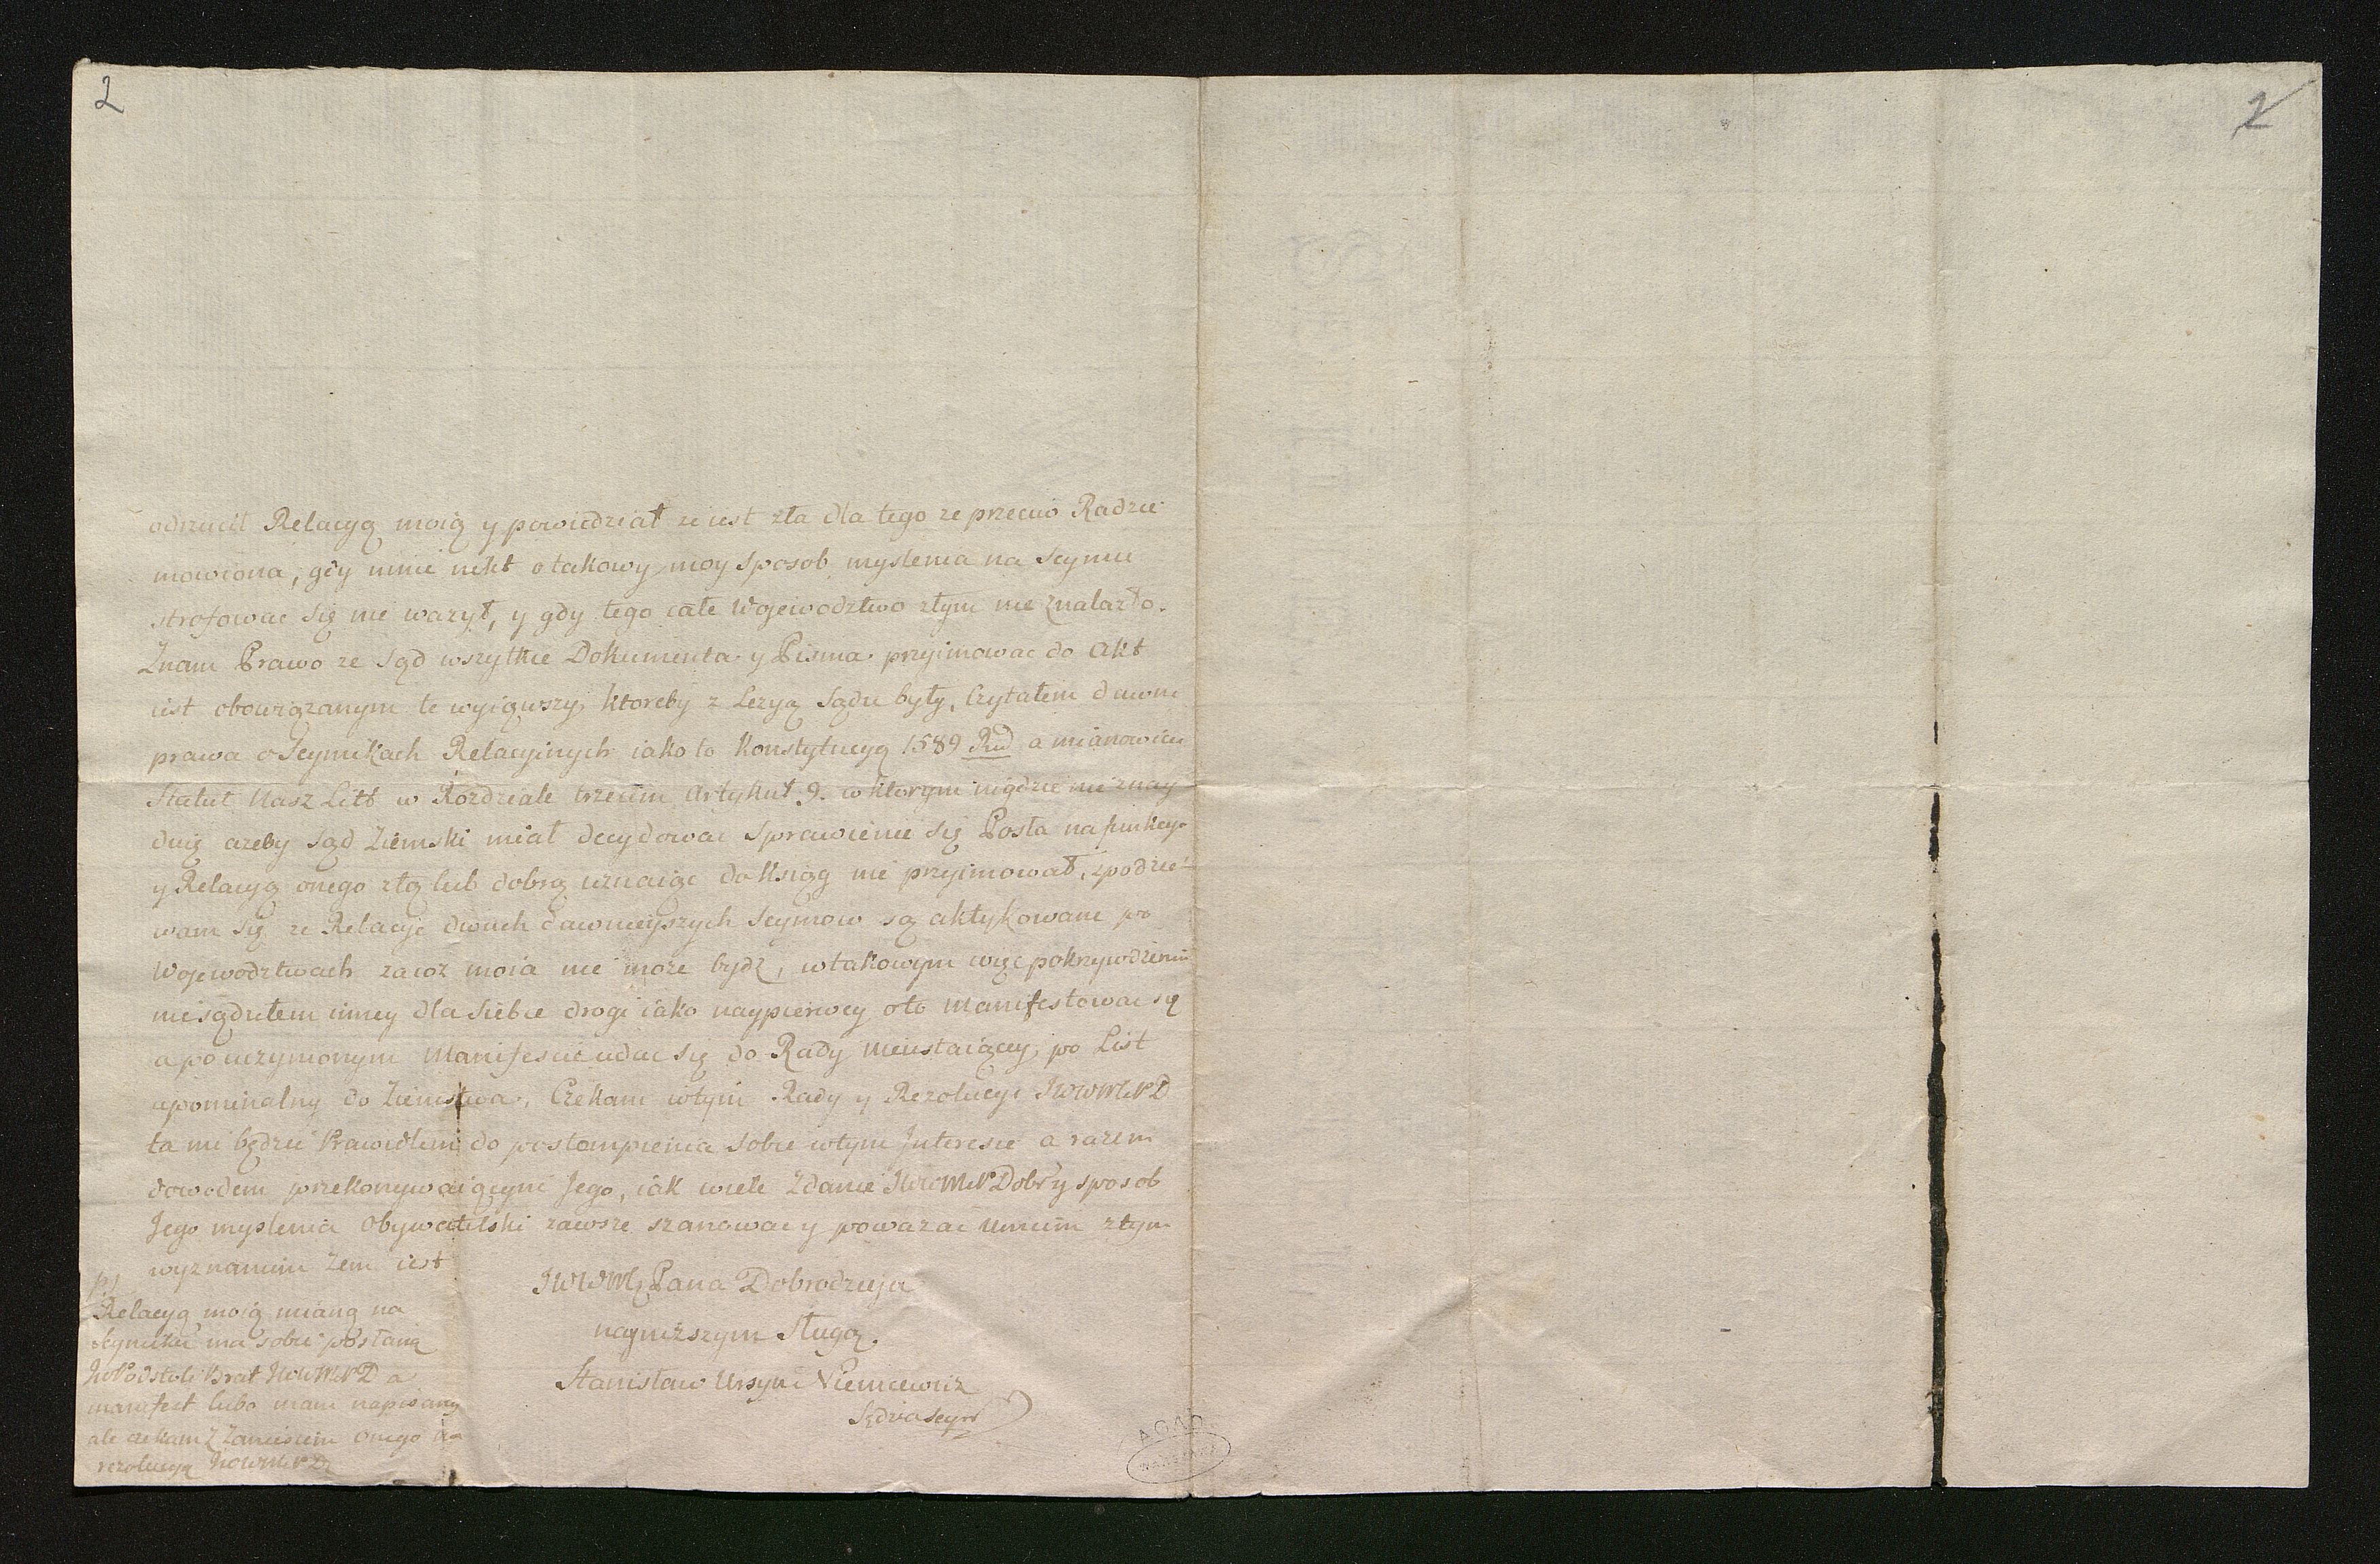 2
2
odrzucił Relacyą moią y powiedział ze iest zła dla tego ze przeciw Radzie
mowiona, gdy mnie nikt o takowy moy sposob myslenia na Seymie
strofowac się nie wazył, y gdy tego całe Wojewodztwo złym nie znalazło.
Znam Prawo ze Sąd wszytkie Dokumenta y Pisma przyimowac do Akt
iest obowiązanym te wyiąwszy ktoreby z Lezyą Sądu były, Czytałem dawne
prawa o Seymikach Relacyinych iako to Konstytucyą 1589 a mianowicie
Statut Nasz Litt w Rozdziale trzecim Artykuł 9. w ktorym nigdzie nie znay
duię azeby Sąd Ziemski miał decydowac sprawienie się Posła na funkcyi
y Relacyą onego złą lub dobrą uznaiąc do Xsiąg nie przyimował, spodzie
wam się ze Relacye dwuch dawnieyszych Seymow są aktykowane po
Wojewodztwach zacoz moia nie może bydz, w takowym więc pokrzywdzeniu
nie sądziłem inney dla siebie drogi iako naypierwey oto Manifestowac się
a po uczynionym Manifescie udac się do Rady Nieustaiącey, po List
upominalny do Ziemstwa, Czekam w tym Rady y Rezolucyi JWWMPD
ta mi będzie Prawidłem do postompienia sobie w tym Interesie a razem
dowodem przekonywaiącym Jego, iak wiele Zdanie JWWMPDobr y sposob
Jego myslenia Obywatelski zawsze szanowac y powazac umiem z tym
wyznaniem żem iest
JWWMć Pana Dobrodzieja
nayniższym Sługą.
Stanisław Ursyn Niemcewicz
Sędzia Seym
PS
Relacyą moią mianą na
Seymiku ma sobie posłaną
JWPodstoli Brat JWWMPD a
manifest lubo mam napisany
ale czekam z Zaniesieniem onego na
rezolucyą JWWMPD
AGAD
WARSZAWA